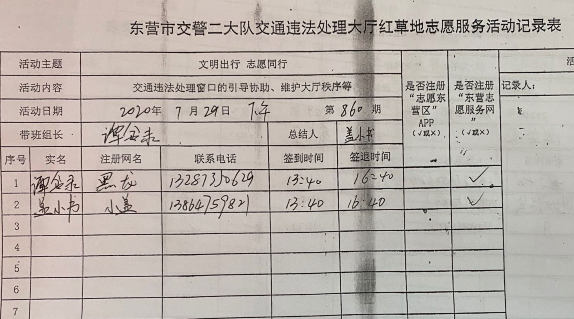 东营市交警二大队交通违法处理大厅红草地志愿服务活动记录表
活动主题 文明出行 志愿同行
活动内容 交通违法处理窗口的引导协助、维护大厅秩序等
是否注册“志愿东营区”APP（√或×）
是否注册“东营志愿服务网”（√或×）
活
记录人：
活动日期 2020年 7月 29日 下午 第 860 期
带班组长 总结人 盖小书
序号 实名 注册网名 联系电话 签到时间 签退时间
1 黑龙 13287350629 13:40 16:40 ✓
2 盖小书 小盖 13:40 16:40 ✓
3
4
5
6
7